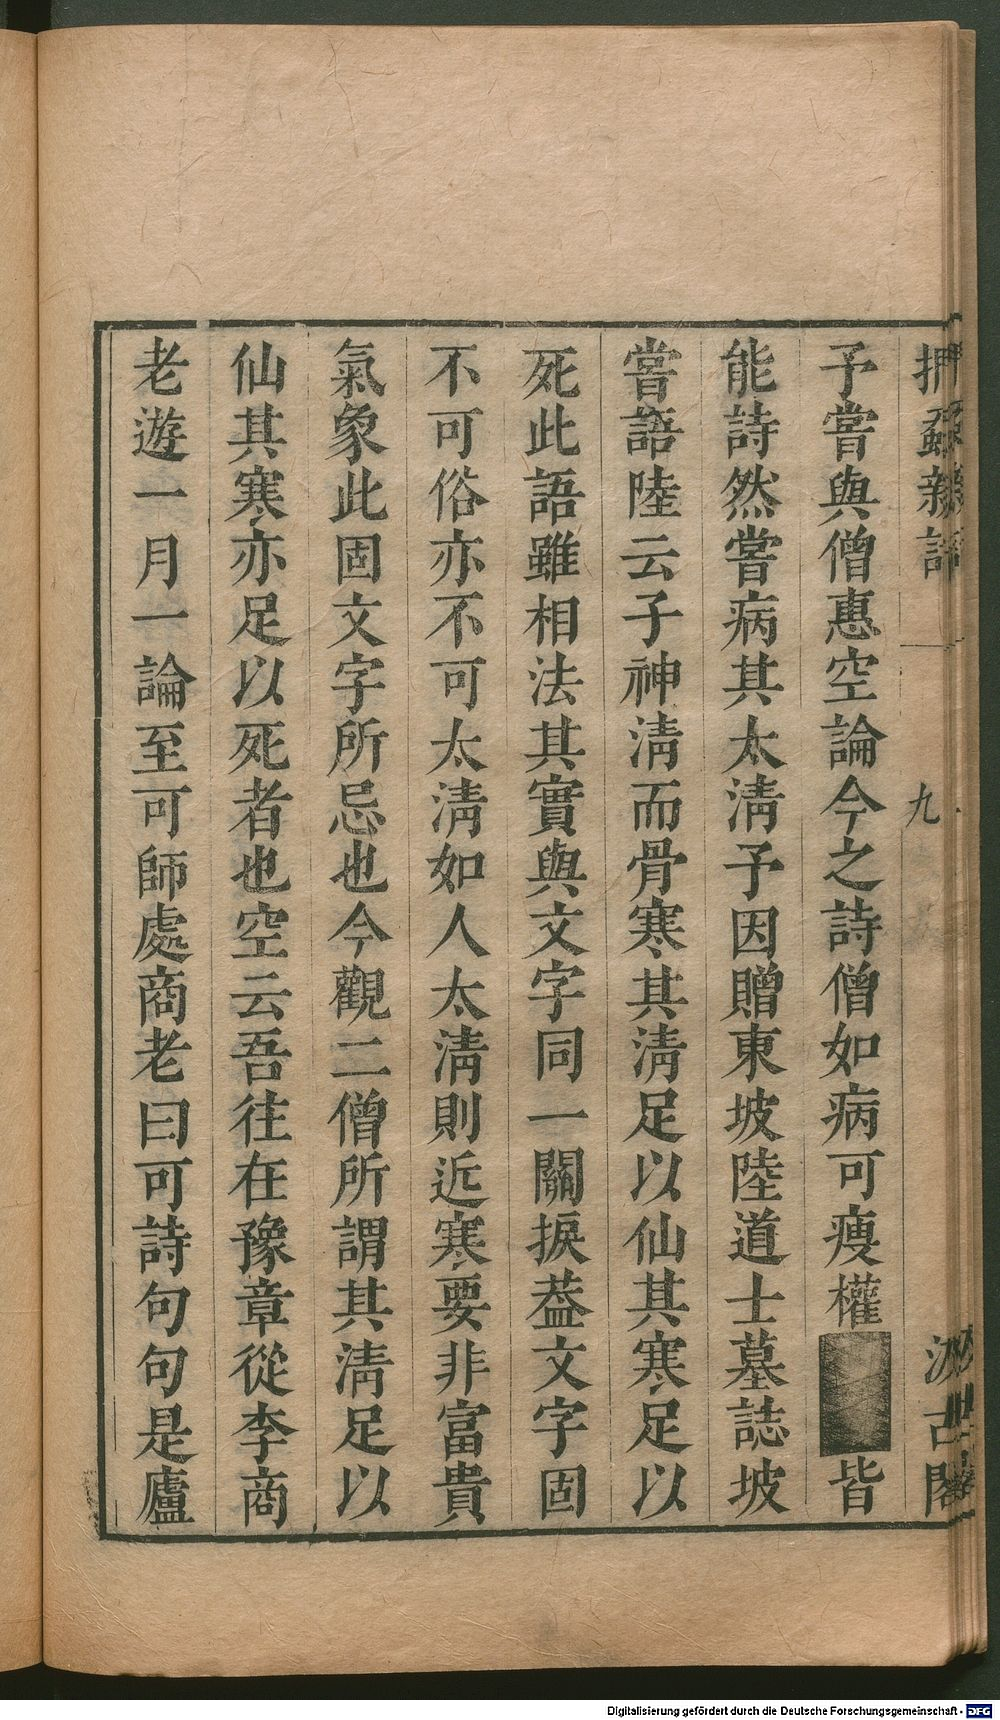 捫蝨新話
九
汲古閣
予嘗與僧惠空論今之詩僧如病可瘦權皆
能詩然嘗病其太淸予因贈東坡陸道士墓誌坡
嘗語陸云子神淸而骨寒其淸足以仙其寒足以
死此語雖相法其實與文字同一關捩葢文字固
不可俗亦不可太淸如人太淸則近寒要非富貴
氣象此固文字所忌也今觀二僧所謂其淸足以
仙其寒亦足以死者也空云吾往在豫章從李商
老遊一月一論至可師處商老曰可詩句句是廬
Digitalisierung gefördert durch die Deutsche Forschungsgemeinschaft - DFG